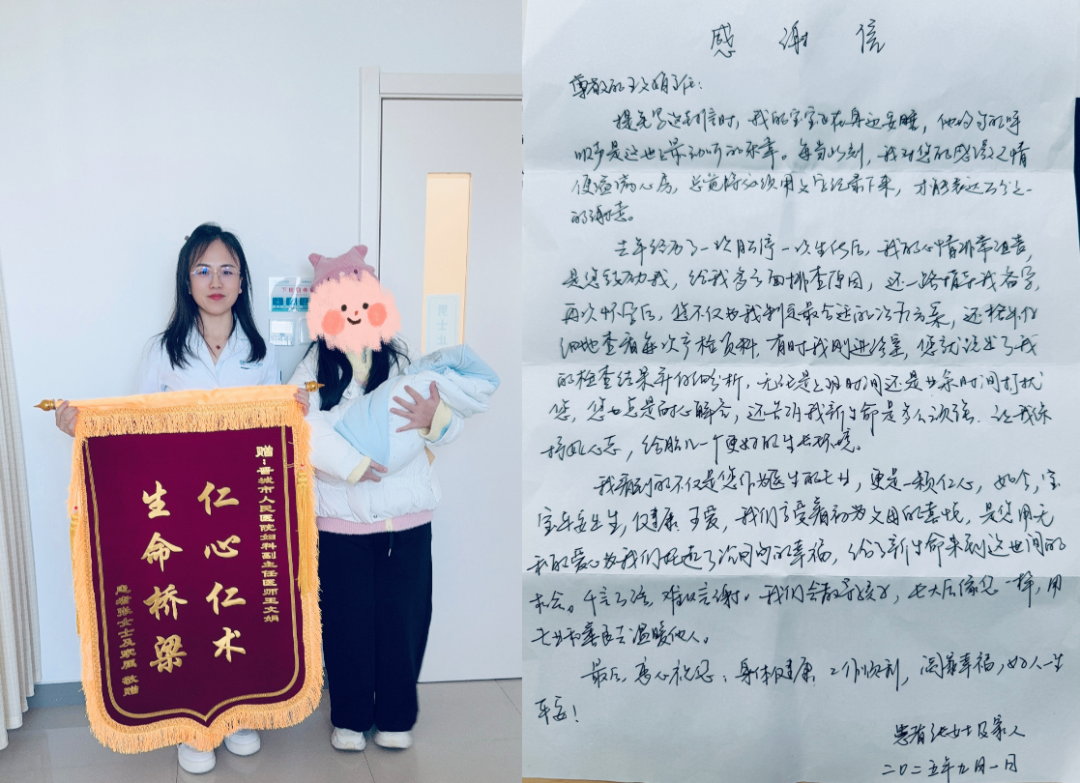 赠：晋城市人民医院妇科副主任医师王文娟
仁心仁术
生命桥梁
患者张女士及家属 敬赠
博士
感谢信
尊敬的王文娟主任：
提笔写这封信时，我的宝宝正在身边安睡，他均匀的呼
吸声是这世上最动听的乐章。每当此刻，我对您的感激之情
便溢满心房，总觉得必须用文字记录下来，才能表达万分之一
的谢意。
去年经历了一次胎停一次生化后，我的心情非常沮丧，
是您鼓励我，给我多方面排查原因，还一路指导我备孕，
再次怀孕后，您不仅为我制定最合适的治疗方案，还格外仔
细地查看每次产检资料，有时我刚进诊室，您就说出了我
的检查结果并仔细分析，无论是上班时间还是业余时间打扰
您，您也总是耐心解答，还告诉我新生命是多么顽强，让我保
持好心态，给胎儿一个更好的生长环境。
我看到的不仅是您作为医生的专业，更是一颗仁心，如今，宝
宝平安出生，健康可爱，我们享受着初为父母的喜悦，是您用无
私的爱心为我们托起了沉甸甸的幸福，给了新生命来到这世间的
机会。千言万语，难以言谢。我们会教导孩子，长大后像您一样，用
专业和善良去温暖他人。
最后，衷心祝您：身体健康，工作顺利，阖家幸福，好人一生
平安！
患者张女士及家人
二〇二五年九月一日